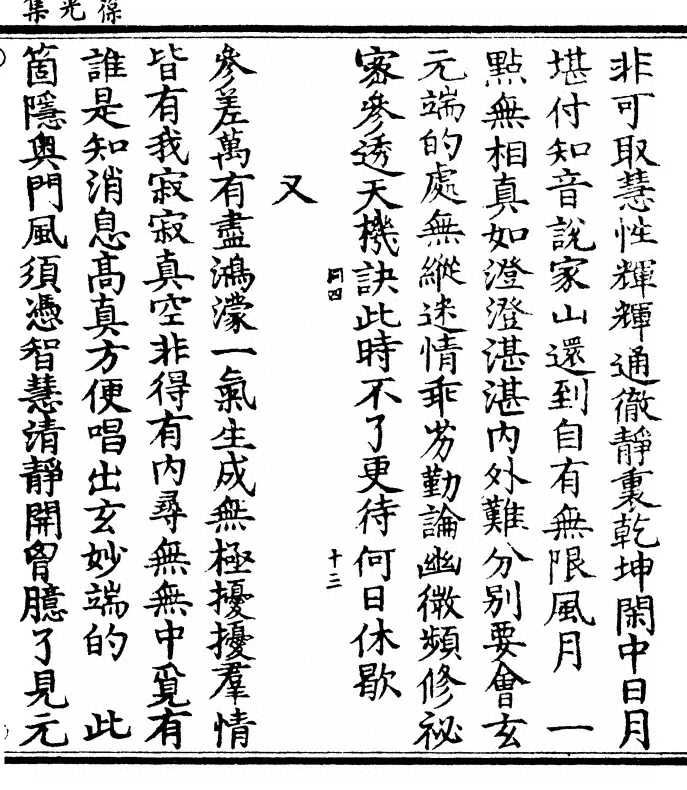 葆光集
非可取慧性輝輝通徹靜裏乾坤閑中日月
堪付知音說家山還到自有無限風月　一
點無相真如澄澄湛湛內外難分別要會玄
元端的處無縱迷情乖劣勤論幽微頻修祕
密參透天機訣此時不了更待何日休歇
同四
十二
又
參差萬有盡鴻濛一氣生成無極擾擾羣情
皆有我寂寂真空非得有內尋無無中覓有
誰是知消息高真方便唱出玄妙端的　此
箇隱奧門風須憑智慧清靜開胷臆了見元